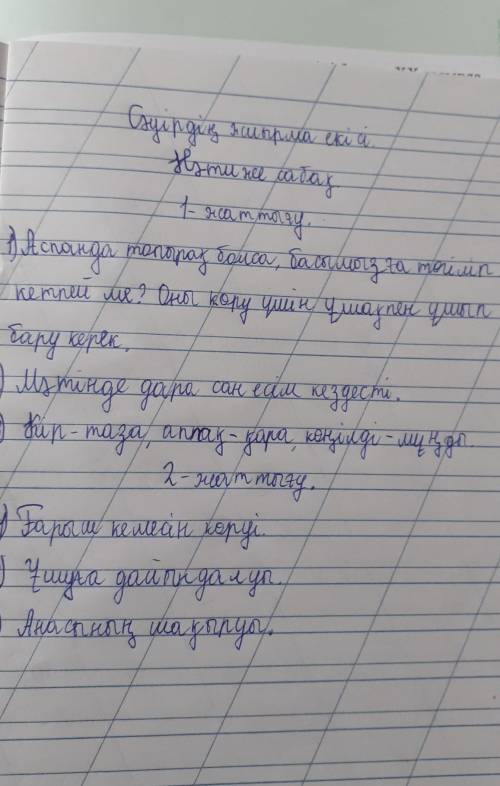 Сәуірдің жиырма екісі.
Нәтиже сабақ
1-жаттығу.
1) Аспанда топырақ болса, басымызға төгіліп
кетпей ме? Оны көру үшін ұшақпен ұшып
бару керек.
) Мәтінде дара сан есім кездесті.
) Кір-таза, аппақ-қара, көңілді-мұңды.
2-жаттығу.
) Ғарыш кемесін көруі.
) Ұшуға дайындалуы.
) Анасының шақыруы.